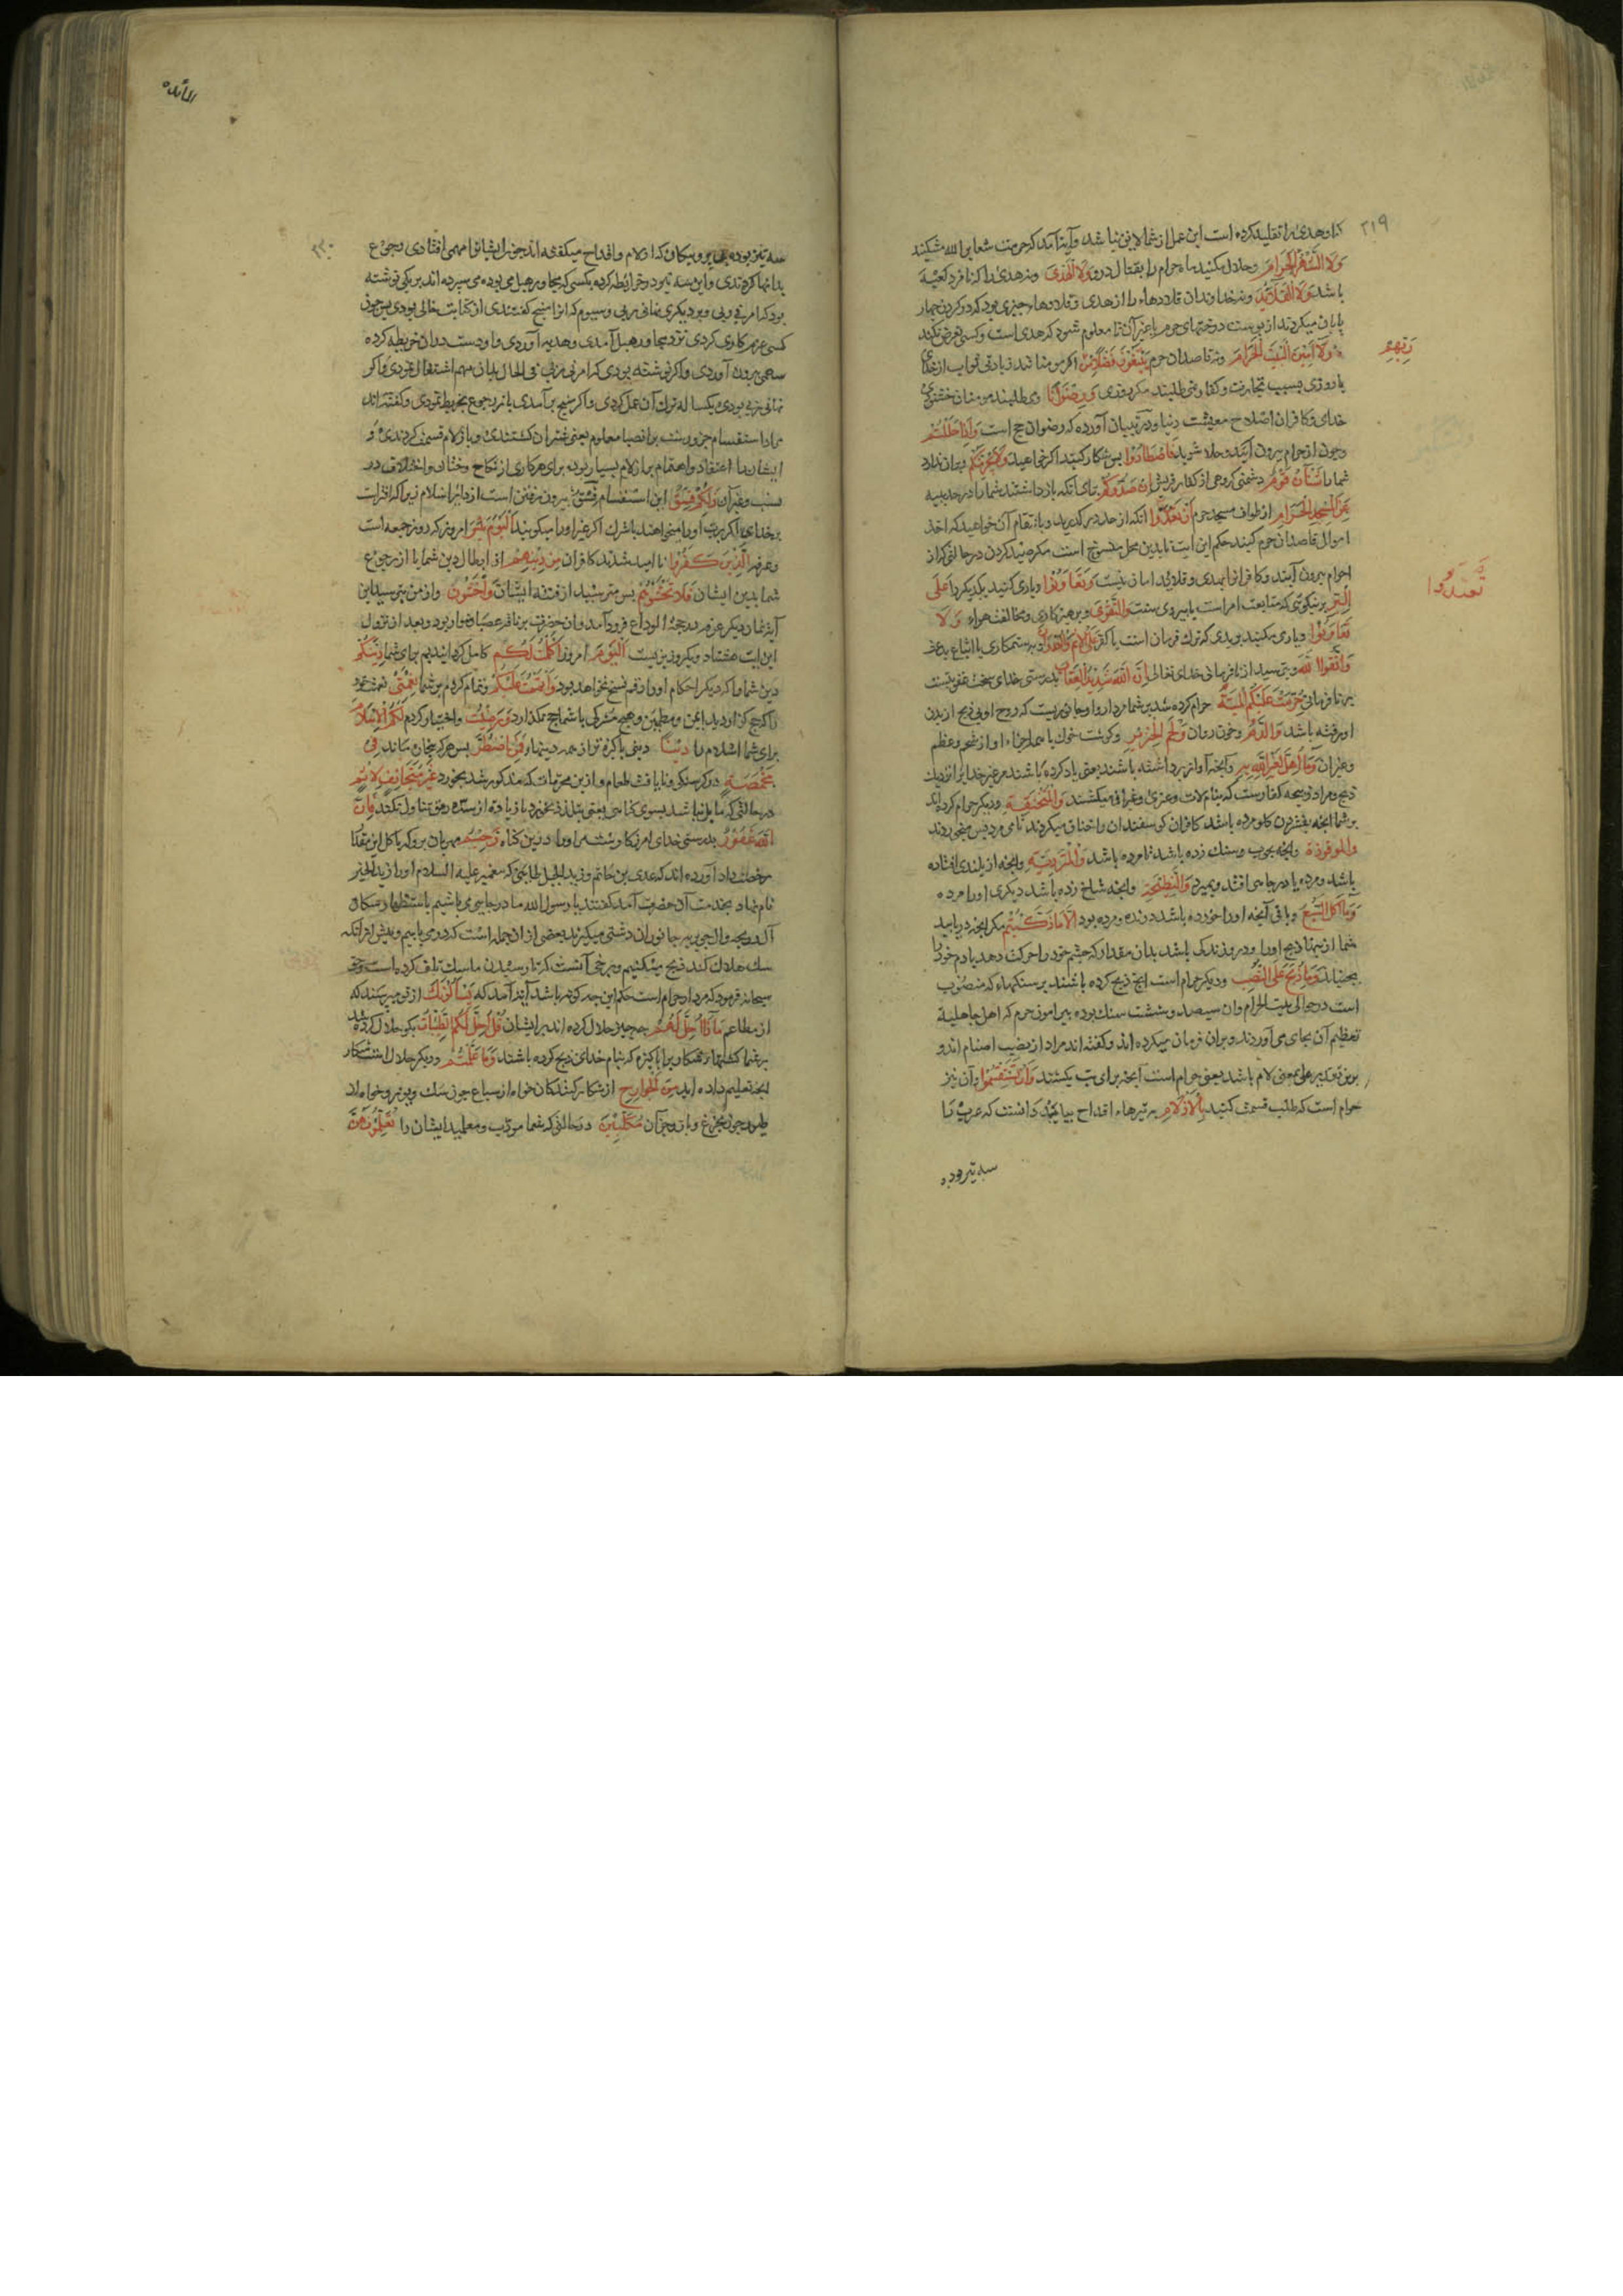 ۲۱۹
کناه وهدی را تقلید کرده است این عمل از شما لایق نباشد وآیة آمد که حرمت شعایر الله مشکنید
وَلَا الشَّهْرَ الْحَرَامَ وحلال مکنید ماه حرام را بقتال درو وَلَا الْهَدْیَ ونه هدی را که نامزد کعبه
باشد وَلَا الْقَلَائِدَ ونه خداوندان قلادهاء را از هدی وقلادها چیزی بود که در کردن جهار
پایان میکردند از پوست درختهای حرم یا غیر آن تا معلوم شود که هدی است وکسی تعرض نکند
وَلَا آمِّینَ الْبَیْتَ الْحَرَامَ ونه قاصدان حرم یَبْتَغُونَ فَضْلًا مِنْ اکر مومنانند زیادتی ثواب از خدای
رَبِّهِمْ
یا روزی بسبب تجارت وکفار می طلبند مکر روزی وَرِضْوَانًا ومی طلبند مومنان خشنودی
خدای وکافران اصلاح معیشت دنیا ودر تبیان آورده که رضوان حج است وَإِذَا حَلَلْتُمْ
وچون از حرام بیرون آئید وحلال شوید فَاصْطَادُوا پس شکار کنید اکر خواهید وَلَا یَجْرِمَنَّکُمْ وبران ندارد
شما را شَنَآنُ قَوْمٍ دشمنی کروهی از کفار قریش أَنْ صَدُّوکُمْ برای آنکه بازداشتند شما را در حدیبیه
عَنِ الْمَسْجِدِ الْحَرَامِ از طواف مسجد حرم أَنْ تَعْتَدُوا آنکه از حد درکذرید وبانتقام آن خواهید که اخذ
اموال قاصدان حرم کنید حکم این آیت تا بدین محل منسوخ است مکر صید کردن در حالتی که از
احرام بیرون آیند وکافران را بهدی وقلائد امان نیست وَتَعَاوَنُوا ویاری کنید یکدیکر را عَلَی
تَعْتَدُوا
الْبِرِّ بر نیکوئی که متابعت امر است یا پیروی سنت وَالتَّقْوَی وپرهیزکاری ومخالفت هواء وَلَا
تَعَاوَنُوا ویاری مکنید بر بدی که ترک فرمان است یا کفر عَلَی الْإِثْمِ وَالْعُدْوَانِ وبر ستمکاری یا اتباع بدعت
وَاتَّقُوا اللَّهَ وبترسید از نافرمانی خدای تعالی إِنَّ اللَّهَ شَدِیدُ الْعِقَابِ بدرستی خدای سخت عقوبتست
بر نافرمانی حُرِّمَتْ عَلَیْکُمُ الْمَیْتَةُ حرام کرده شد بر شما مردار واو جانوریست که روح او بی ذبح از بدن
او رفته باشد وَالدَّمُ وخون روان وَلَحْمُ الْخِنْزِیرِ وکوشت خوک با همه اجزاء او از شحم وعظم
وغیر آن وَمَا أُهِلَّ لِغَیْرِ اللَّهِ بِهِ وآنچه آواز برداشته باشند یعنی یاد کرده باشند مر غیر خدا را نزدیک
ذبح ومراد ذبیحه کفارست که بنام لات وعزی وغیر آن میکشتند وَالْمُنْخَنِقَةُ ودیکر حرام کرده اند
بر شما آنچه بفشردن کلو مرده باشد کافران کوسفندان را خناق میکردند تا می مرد پس میخوردند
وَالْمَوْقُوذَةُ وآنچه بچوب وسنک زده باشند تا مرده باشد وَالْمُتَرَدِّیَةُ وآنچه از بلندی افتاده
باشد ومرده یا در چاهی افتد وبمیرد وَالنَّطِیحَةُ وآنچه شاخ زده باشد دیکری او را مرده
وَمَا أَکَلَ السَّبُعُ وباقی آنچه او را خورده باشد دونده ومرده بود إِلَّا مَا ذَکَّیْتُمْ مکر آنچه دریابید
شما از اینها ذبح او را ودرو زندکی باشد بدان مقدار که چشم خود را حرکت دهد یا دم خود را
بجنباند وَمَا ذُبِحَ عَلَی النُّصُبِ ودیکر حرام است آنچه ذبح کرده باشند بر سنکهاء که منصوب
است در حوالی بیت الحرام وآن سیصد وشصت سنک بوده پیرامون حرم که اهل جاهلیة
تعظیم آن بجای می آوردند وبران قربان میکرده اند وکفته اند مراد از نصب اصنام اند و
برین تقدیر علی بمعنی لام باشد یعنی حرام است آنچه برای بت بکشند وَأَنْ تَسْتَقْسِمُوا وآن نیز
حرام است که طلب قسمت کنید بِالْأَزْلَامِ به تیرهاء اقداح بباید دانست که عرب را
سه تیر بوده
المائده
۲۲۰
سه تیر بوده بی پر وپیکان که ازلام واقداح میکفته اند چون ایشانرا مهمی افتادی رجوع
بدانها کردندی واین سه تیر در خرایطه کرده بکسی که مجاور هبل می بوده می سپرده اند بر یکی نوشته
بود که امرنی ربی وبر دیکری نهانی ربی وسیوم که آنرا منیح کفتندی از کتابت خالی بودی پس چون
کسی عزم کاری کردی نزد مجاور هبل آمدی وهدیه آوردی واو دست دران خریطه کرده
سهمی بیرون آوردی واکر نوشته بودی که امرنی ربی فی الحال بدان مهم اشتغال نمودی واکر
نهانی ربی بودی یکسال ترک آن عمل کردی واکر منیح برآمدی باز رجوع بخریطه نمودی وکفته اند
مراد استقسام جزورست بر انصبا معلوم یعنی شتران کشتندی وبازلام قسمت کردندی و
ایشان را اعتقاد واهتمام بر ازلام بسیار بود برای هر کاری از نکاح وختان واختلاف در
نسب وغیر آن ذَلِکُمْ فِسْقٌ این استقسام فسق بیرون رفتن است از دایره اسلام زیرا که افتراست
بخدای اکر برب او را میخواهند یا شرک اکر غیر او را میکویند الْیَوْمَ یَئِسَ امروز که روز جمعه است
وعرفه الَّذِینَ کَفَرُوا نا امید شدند کافران مِنْ دِینِکُمْ از ابطال دین شما یا از رجوع
شما بدین ایشان فَلَا تَخْشَوْهُمْ پس مترسید از فتنه ایشان وَاخْشَوْنِ واز من بترسید این
آیة نماز دیکر عرفه در حجة الوداع فرود آمد وآن حضرت بر ناقه عضباء سوار بود وبعد از نزول
این آیت هشتاد ویکروز بزیست الْیَوْمَ امروز أَکْمَلْتُ لَکُمْ کامل کردانیدیم برای شما دِینَکُمْ
دین شما را که دیکر احکام او را رقم نسخ نخواهد بود وَأَتْمَمْتُ عَلَیْکُمْ وتمام کردم بر شما نِعْمَتِی نعمت خود
را که حج کزاردید ایمن ومطمئن وهیچ مشرکی با شما حج نمیکذارد وَرَضِیتُ واختیار کردم لَکُمُ الْإِسْلَامَ
برای شما اسلام را دِینًا دینی پاکیزه تر از همه دینهاء فَمَنِ اضْطُرَّ پس هر که بیچاره ماند فِی
مَخْمَصَةٍ در کرسنکی ونایافت طعام واز این محرمات که مذکور شد بخورد غَیْرَ مُتَجَانِفٍ لِإِثْمٍ
در حالتی که مایل نباشد بسوی کناهی یعنی بتلذذ نخورد یا زیاده از سد رمق تناول نکند فَإِنَّ
اللَّهَ غَفُورٌ بدرستی خدای آمرزکارست مر او را درین کناه رَحِیمٌ مهربان برو که باکل این مقدار
رخصت داد آورده اند که عدی بن حاتم وزید الخیل طائی که پیغمبر علیه السلام او را زید الخیر
نام نهاد بخدمت آن حضرت آمد کفتند یا رسول الله ما در جایی می باشیم باستظهار سکان
آل دریحه وال جویریه جانوران دشتی میکیرند بعضی از آن جمله است که درمی یابیم وپیش از آنکه
سک هلاک کند ذبح میکنیم وبرخی آنست که تا رسیدن ما سک تلف کرده است وحق
سبحانه فرمود که مردار حرام است حکم این چه کونه باشد آیة آمد که یَسْأَلُونَکَ از تو می پرسند که
از مطاعم مَاذَا أُحِلَّ لَهُمْ چه چیز حلال کرده اند بر ایشان قُلْ أُحِلَّ لَکُمُ الطَّیِّبَاتُ بکو حلال کرده شد
بر شما کشتیهاء پاکیزه که بنام خدای ذبح کرده باشند وَمَا عَلَّمْتُمْ ودیکر حلال است شکار
آنچه تعلیم داده اید مِنَ الْجَوَارِحِ از شکار کنندکان خواه از سباع چون سک ویوز وخواه از
طیور چون چرغ وباز وجز آن مُکَلِّبِینَ در حالتی که شما مودب ومعلمید ایشان را تُعَلِّمُونَهُنَّ